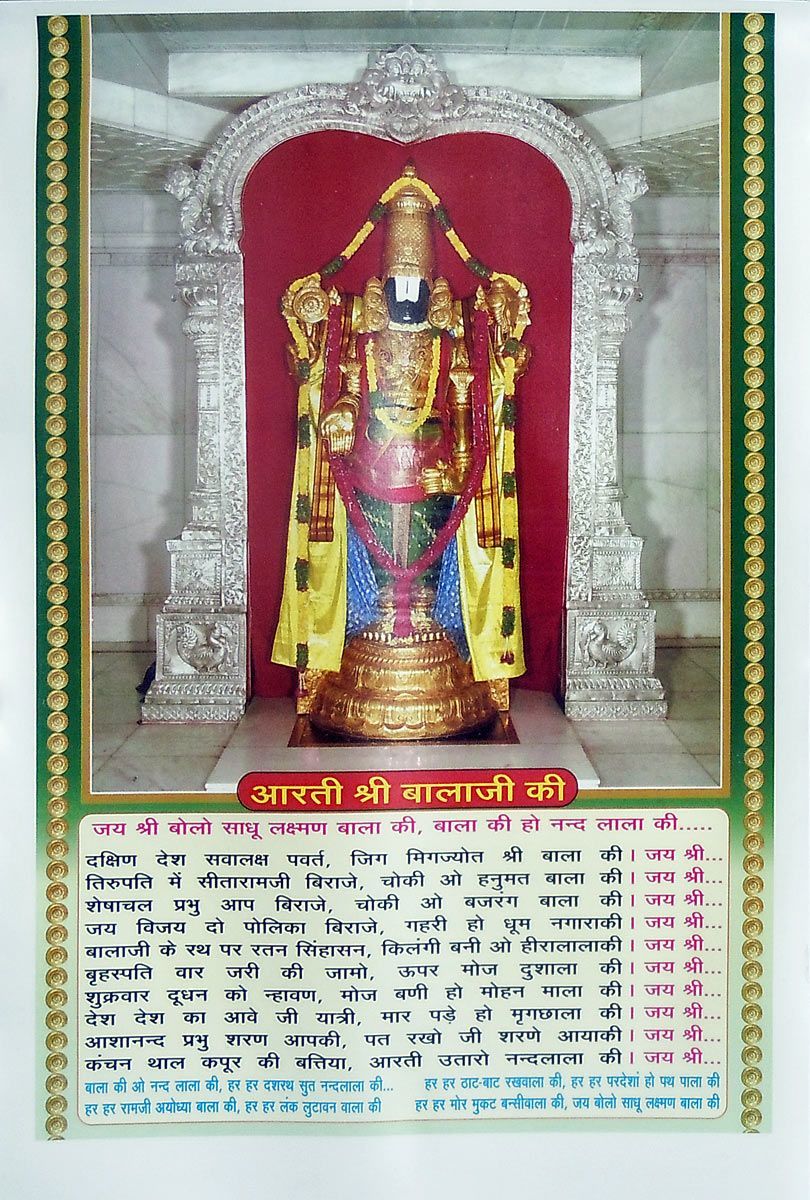 आरती श्री बालाजी की
जय श्री बोलो साधू लक्ष्मण बाला की, बाला की हो नन्द लाला की.....
दक्षिण देश सवालक्ष पवर्त, जिग मिगज्योत श्री बाला की। जय श्री...
तिरुपति में सीतारामजी बिराजे, चोकी ओ हनुमत बाला की। जय श्री...
शेषाचल प्रभु आप बिराजे, चोकी ओ बजरंग बाला की। जय श्री...
जय विजय दो पोलिका बिराजे, गहरी हो धूम नगाराकी। जय श्री...
बालाजी के रथ पर रतन सिंहासन, किलंगी बनी ओ हीरालालाकी। जय श्री...
बृहस्पति वार जरी की जामो, ऊपर मोज दुशाला की। जय श्री...
शुक्रवार दूधन को न्हावण, मोज बणी हो मोहन माला की। जय श्री...
देश देश का आवे जी यात्री, मार पड़े हो मृगछाला की। जय श्री...
आशानन्द प्रभु शरण आपकी, पत रखो जी शरणे आयाकी। जय श्री...
कंचन थाल कपूर की बत्तिया, आरती उतारो नन्दलाला की। जय श्री...
बाला की ओ नन्द लाला की, हर हर दशरथ सुत नन्दलाला की... हर हर ठाट-बाट रखवाला की, हर हर परदेशां हो पथ पाला की
हर हर रामजी अयोध्या बाला की, हर हर लंक लुटावन वाला की हर हर मोर मुकट बन्सीवाला की, जय बोलो साधू लक्ष्मण बाला की